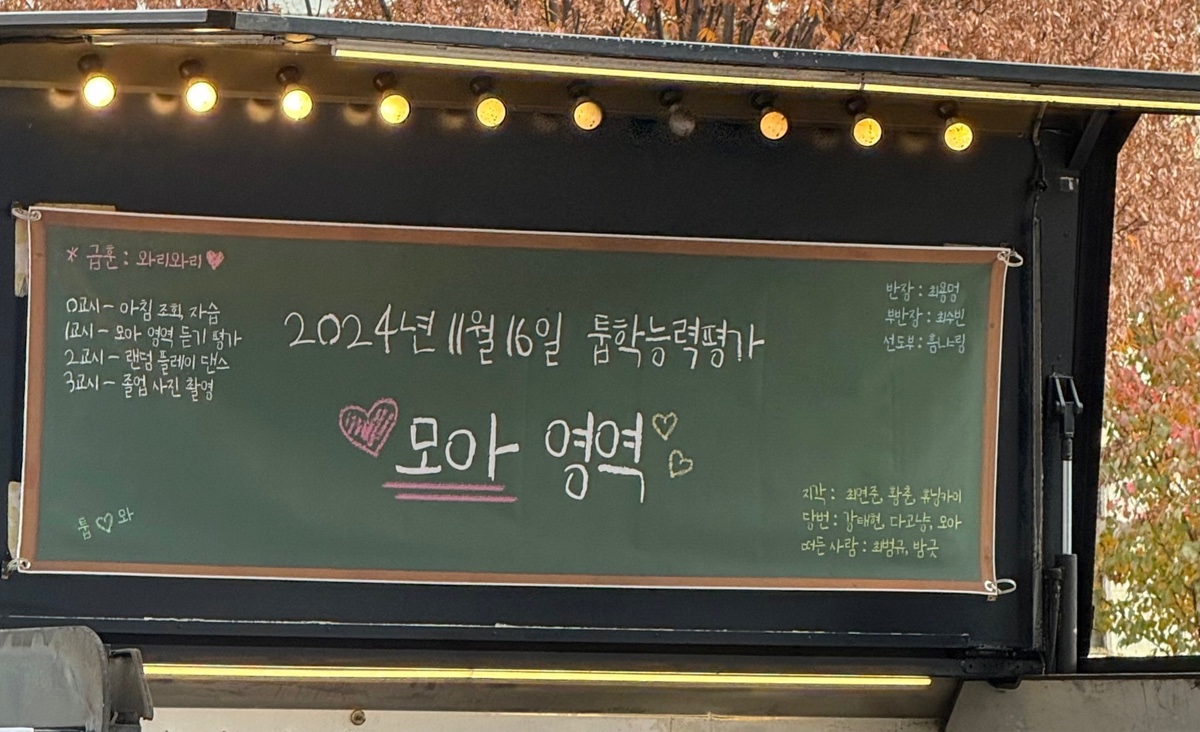 * 급훈 : 와리와리♥
0교시 - 아침 조회, 자습
1교시 - 모아 영역 듣기 평가
2교시 - 랜덤 플레이 댄스
3교시 - 졸업 사진 촬영
2024년 11월 16일 툽학능력평가
♥모아 영역♡♡
반장 : 최용멍
부반장 : 최수빈
선도부 : 흠냐링
지각 : 최연준, 황춘, 휴닝카이
당번 : 강태현, 다코냥, 모아
떠든 사람 : 최범규, 밤긋
툽♡와